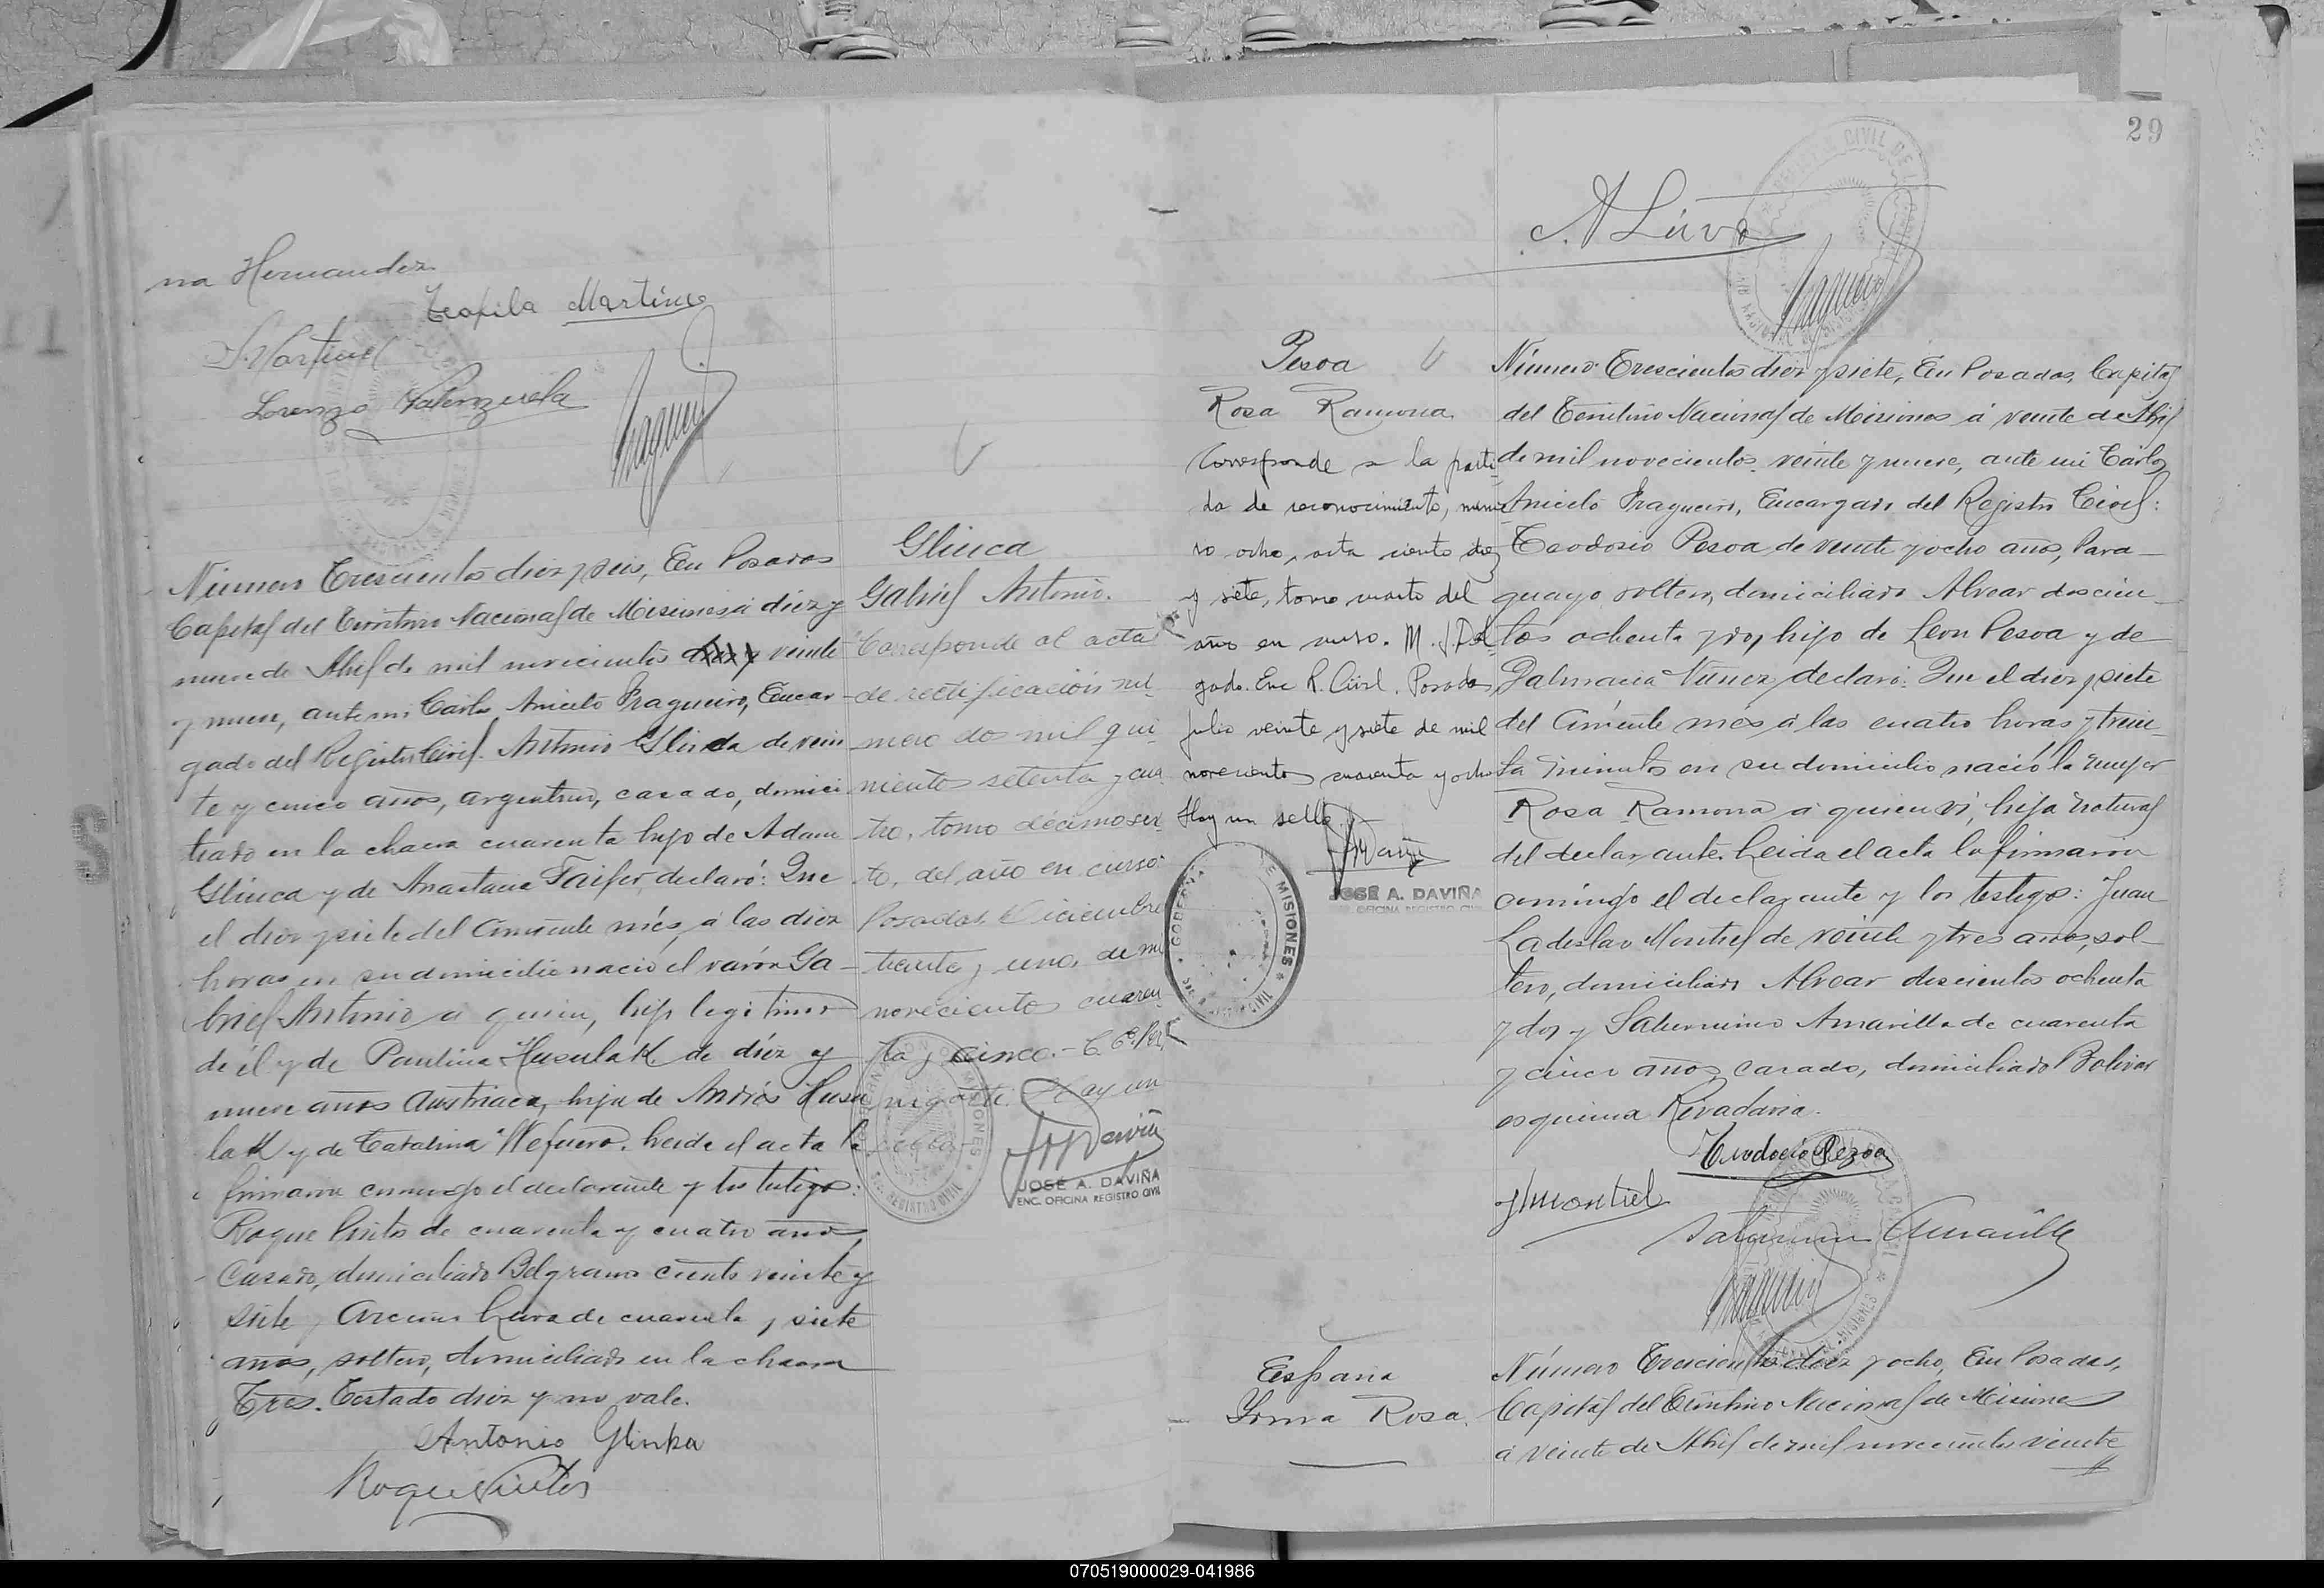 na Hernandez.
Teofila Martinez
S. Martinez
Lorenzo Valenzuela
Número Trescientos diez y seis, En Posadas
Capital del Territorio Nacional de Misiones á diez y
nueve de Abril de mil novecientos diez y veinte
y nueve, ante mi Carlos Aniceto Fragueiro, Encar-
gado del Registro Civil. Antonio Glinca de vein
te y cinco años, argentino, casado, domici
liado en la chacra cuarenta hijo de Adam
Glinca y de Anastacia Faifer, declaró: Que
el diez y siete del corriente més, á las diez
horas en su domicilio nació el varón Ga-
briel Antonio a quien, hijo legitimo
de él y de Paulina Husulak de diez y
nueve años Austriaca, hija de Andrés Husu
lak y de Catalina Nefuero. Leida el acta la
firmaron conmigo el declarante y los testigos:
Roque Pintos de cuarenta y cuatro años,
Casado, domiciliado Belgrano ciento veinte y
siete y Luva de cuarenta y siete
años, soltero, domiciliado en la chacra
Tres. Testado diez y no vale.
Antonio Glinka
Roque Pintos
Glinca
Gabriel Antonio.
Corresponde al acta
de rectificación nú-
mero dos mil qui-
nientos setenta y cua
tro, tomo décimosex-
to, del año en curso.
Posadas, Diciembre
treinta y uno, de mil
novecientos cuaren
ta y cinco.-
Hay un
sello.-
JOSÉ A. DAVIÑA
ENC. OFICINA REGISTRO CIVIL
29
A Luva
Pesoa
Rosa Ramona.
Corresponde a la parti-
da de reconocimiento, núme-
ro ocho, acta ciento diez
y siete, tomo cuarto del
año en curso. M. J. Del-
gado. Enc R. Civil. Posadas,
julio veinte y siete de mil
novecientos cuarenta y ocho
Hay un sello.-
JOSÉ A. DAVIÑA
OFICINA REGISTRO CIVIL
Número Trescientos diez y siete, En Posadas, Capital
del Territorio Nacional de Misiones á veinte de Abril
de mil novecientos veinte y nueve, ante mi Carlos
Aniceto Fragueiro, Encargado del Registro Civil:
Teodosio Pesoa de veinte y ocho años, Para-
guayo, soltero, domiciliado Alvear doscien-
tos ochenta y dos, hijo de Leon Pesoa y de
Dalmacia Nuñez, declaró: Que el diez y siete
del corriente més á las cuatro horas y trein-
ta minutos en su domicilio nació la mujer
Rosa Ramona á quien vi, hija natural
del declarante. Leida el acta la firmaron
conmigo el declarante y los testigos: Juan
Ladislao Montiel de veinte y tres años, sol-
tero, domiciliado Alvear doscientos ochenta
y dos y Saturnino Amarilla de cuarenta
y cinco años, casado, domiciliado Bolivar
esquina Rivadavia.
Teodocio Pezoa
J L Montiel
Saturnino Amarilla
España
Irma Rosa.
Número Trescientos diez y ocho, En Posadas,
Capital del Territorio Nacional de Misiones
á veinte de Abril de mil novecientos veinte
070519000029-041986